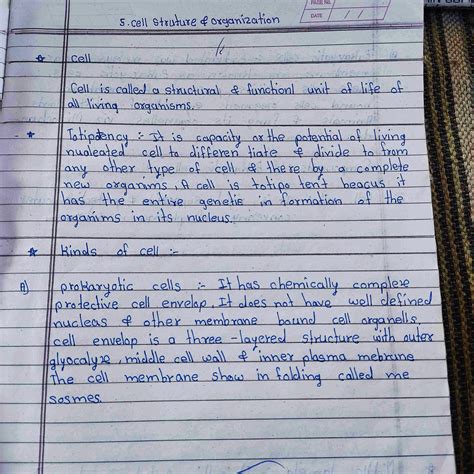 PAGE NO.
DATE
5. cell Struture & organization
* cell
Cell is called a structural & functionl unit of life of
all living organisms.
* Totipotency :- It is capacity or the potential of living
nucleated cell to differen tiate & divide to from
any other type of cell & there by a complete
new organims, A cell is totipo tent beacus it
has the entive genetis in formation of the
organims in its nucleus.
* Kinds of cell :-
A) prokaryotic cells :- It has chemically complexe
protective cell envelop. It does not have well defined
nucleas & other membrane bound cell organells.
cell envelop is a three-layered structure with outer
glyocalyx, middle cell wall & inner plasma mebrane
The cell membrane show in folding called me
sosmes.